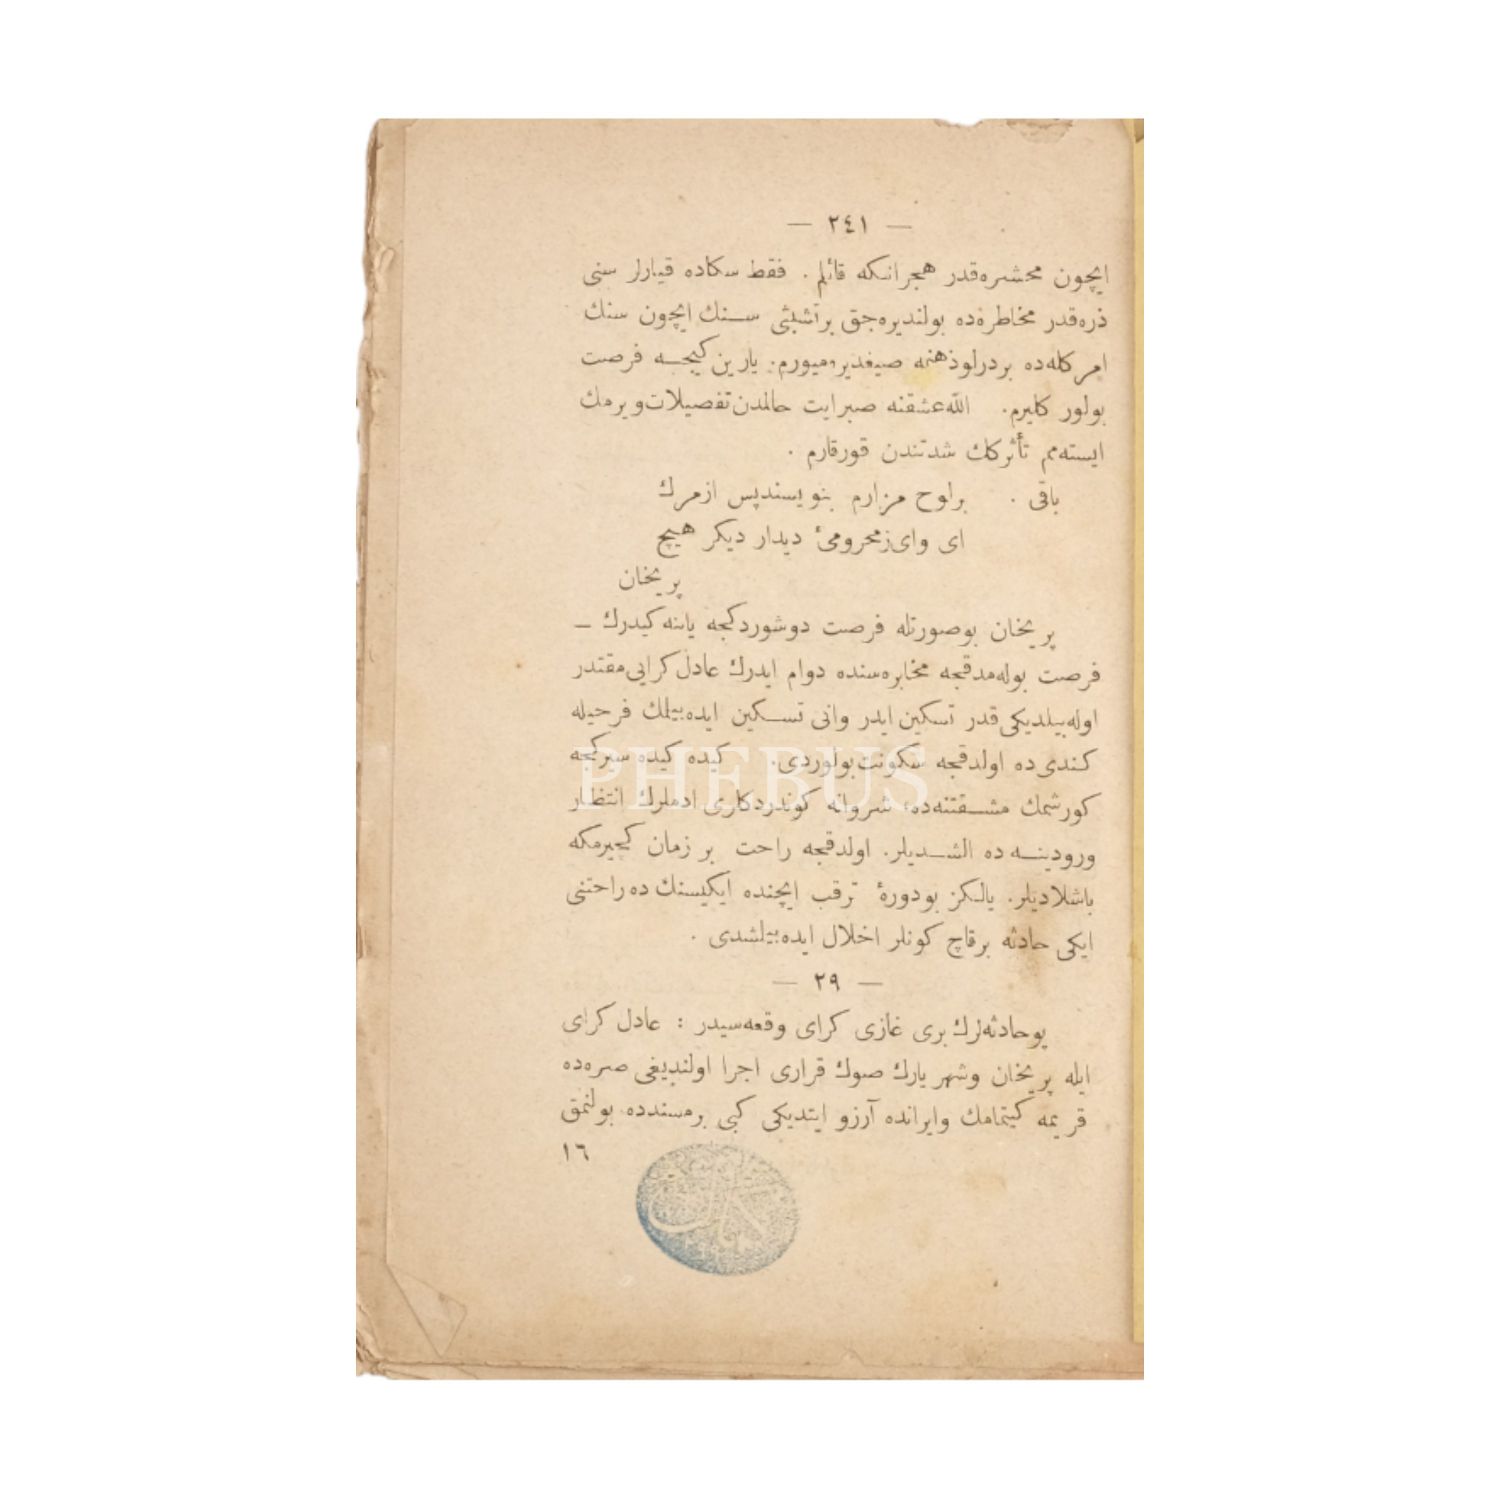 — ٢٤١ —
ایچون محشره‌قدر هجرانکه قائلم . فقط سکاده قیارلر سنی
ذره‌قدر مخاطره‌ده بولندیره‌جق برتشبثی سنك ایچون سنك
امرکله‌ده بردرلوذهنمه صیغدیره‌میورم. یارین کیجه فرصت
بولور کلیرم. الله‌عشقنه صبرایت حالمدن‌تفصیلات‌ویرمك
ایسته‌مم تأثرکك شدتندن قورقارم .
باقی . برلوح مزارم بنویسندپس ازمرك
ای وای‌زمحرومئ دیدار دیکر هیچ
پریخان
پریخان بوصورتله فرصت دوشوردکجه یاننه کیدرك —
فرصت بوله‌مدقجه مخابره‌سنده دوام ایدرك عادل‌کرایی‌مقتدر
اوله‌بیلدیکی‌قدر تسکین ایدر وانی تسکین ایده‌بیلمك فرحیله
کندی‌ده اولدقجه سکونت‌بولوردی. کیده کیده سیرکجه
کورشمك مشقتنه‌ده، شروانه کوندردکلری ادملرك انتظار
ورودینه ده الشدیلر. اولدقجه راحت بر زمان کچیرمکه
باشلادیلر. یالکز بودورهٔ ترقب ایچنده ایکیسنك ده‌راحتنی
ایکی حادثه برقاچ کونلر اخلال ایده‌بیلشدی .
— ٢٩ —
بوحادثه‌لرك بری غازی کرای وقعه‌سیدر : عادل کرای
ایله پریخان وشهریارك صوك قراری اجرا اولندیغی صره‌ده
قریمه کیتمامك وایرانده آرزو ایتدیکی کبی برمسندده بولنمق
١٦
PHEBUS